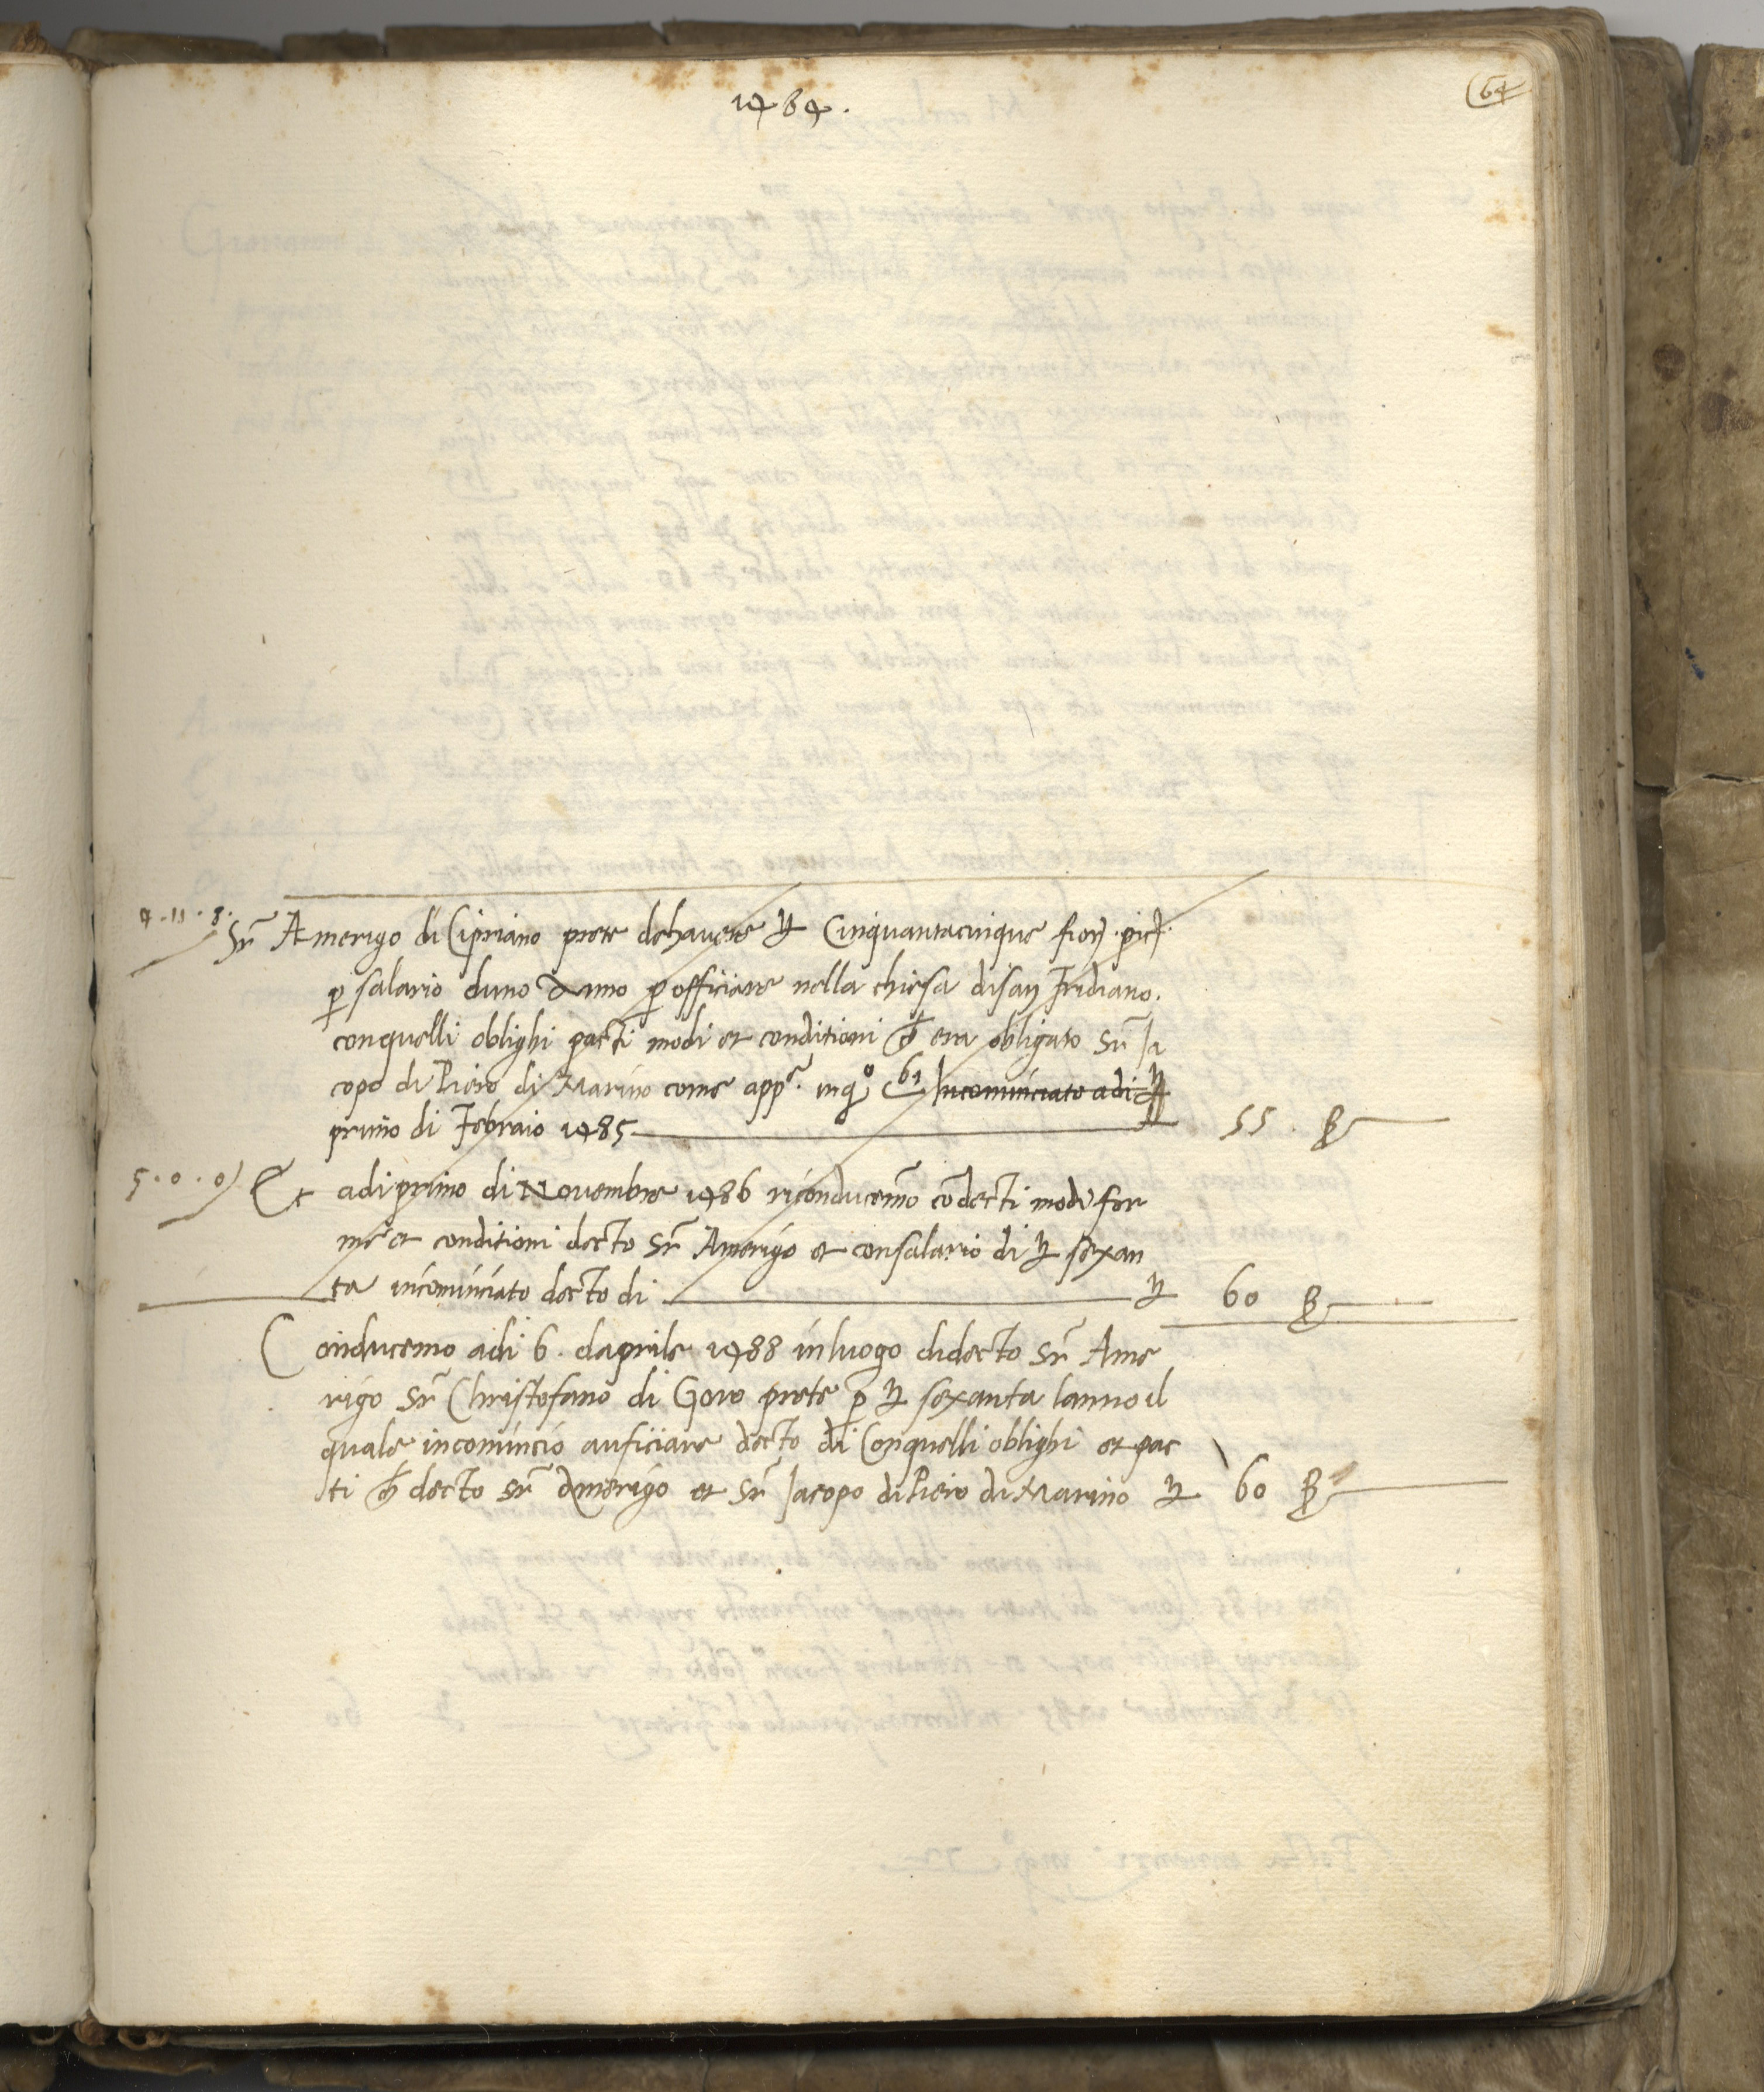 1484.
64
4 · 11 · 8 ·
Sr Amerigo di Cipriano prete dehavere lb Cinquantacinque fior. pic.
p salario duno Anno p officiare nella chiesa disan Fridiano.
conquelli oblighi pacti modi et conditioni ch era obligato Sr Ja
copo di Piero di Marino come appe. inqo c 61 Incominciato adi lb
primo di Febraio 1485 55 · ß
5 · 0 · 0
Et adi primo di Novembre 1486 riconducemo co decti modi for
me et conditioni decto Sr Amerigo et consalario di lb sexan
ta incominciato decto di lb 60 ß
Conducemo adi 6. daprile 1488 inluogo didecto Sr Ame
rigo Sr Christofano di Goro prete p lb sexanta lanno il
quale incomincio auficiare decto di Conquelli oblighi et pac
ti ch decto Sr Amerigo et Sr Jacopo di Piero di Marino lb 60 ß